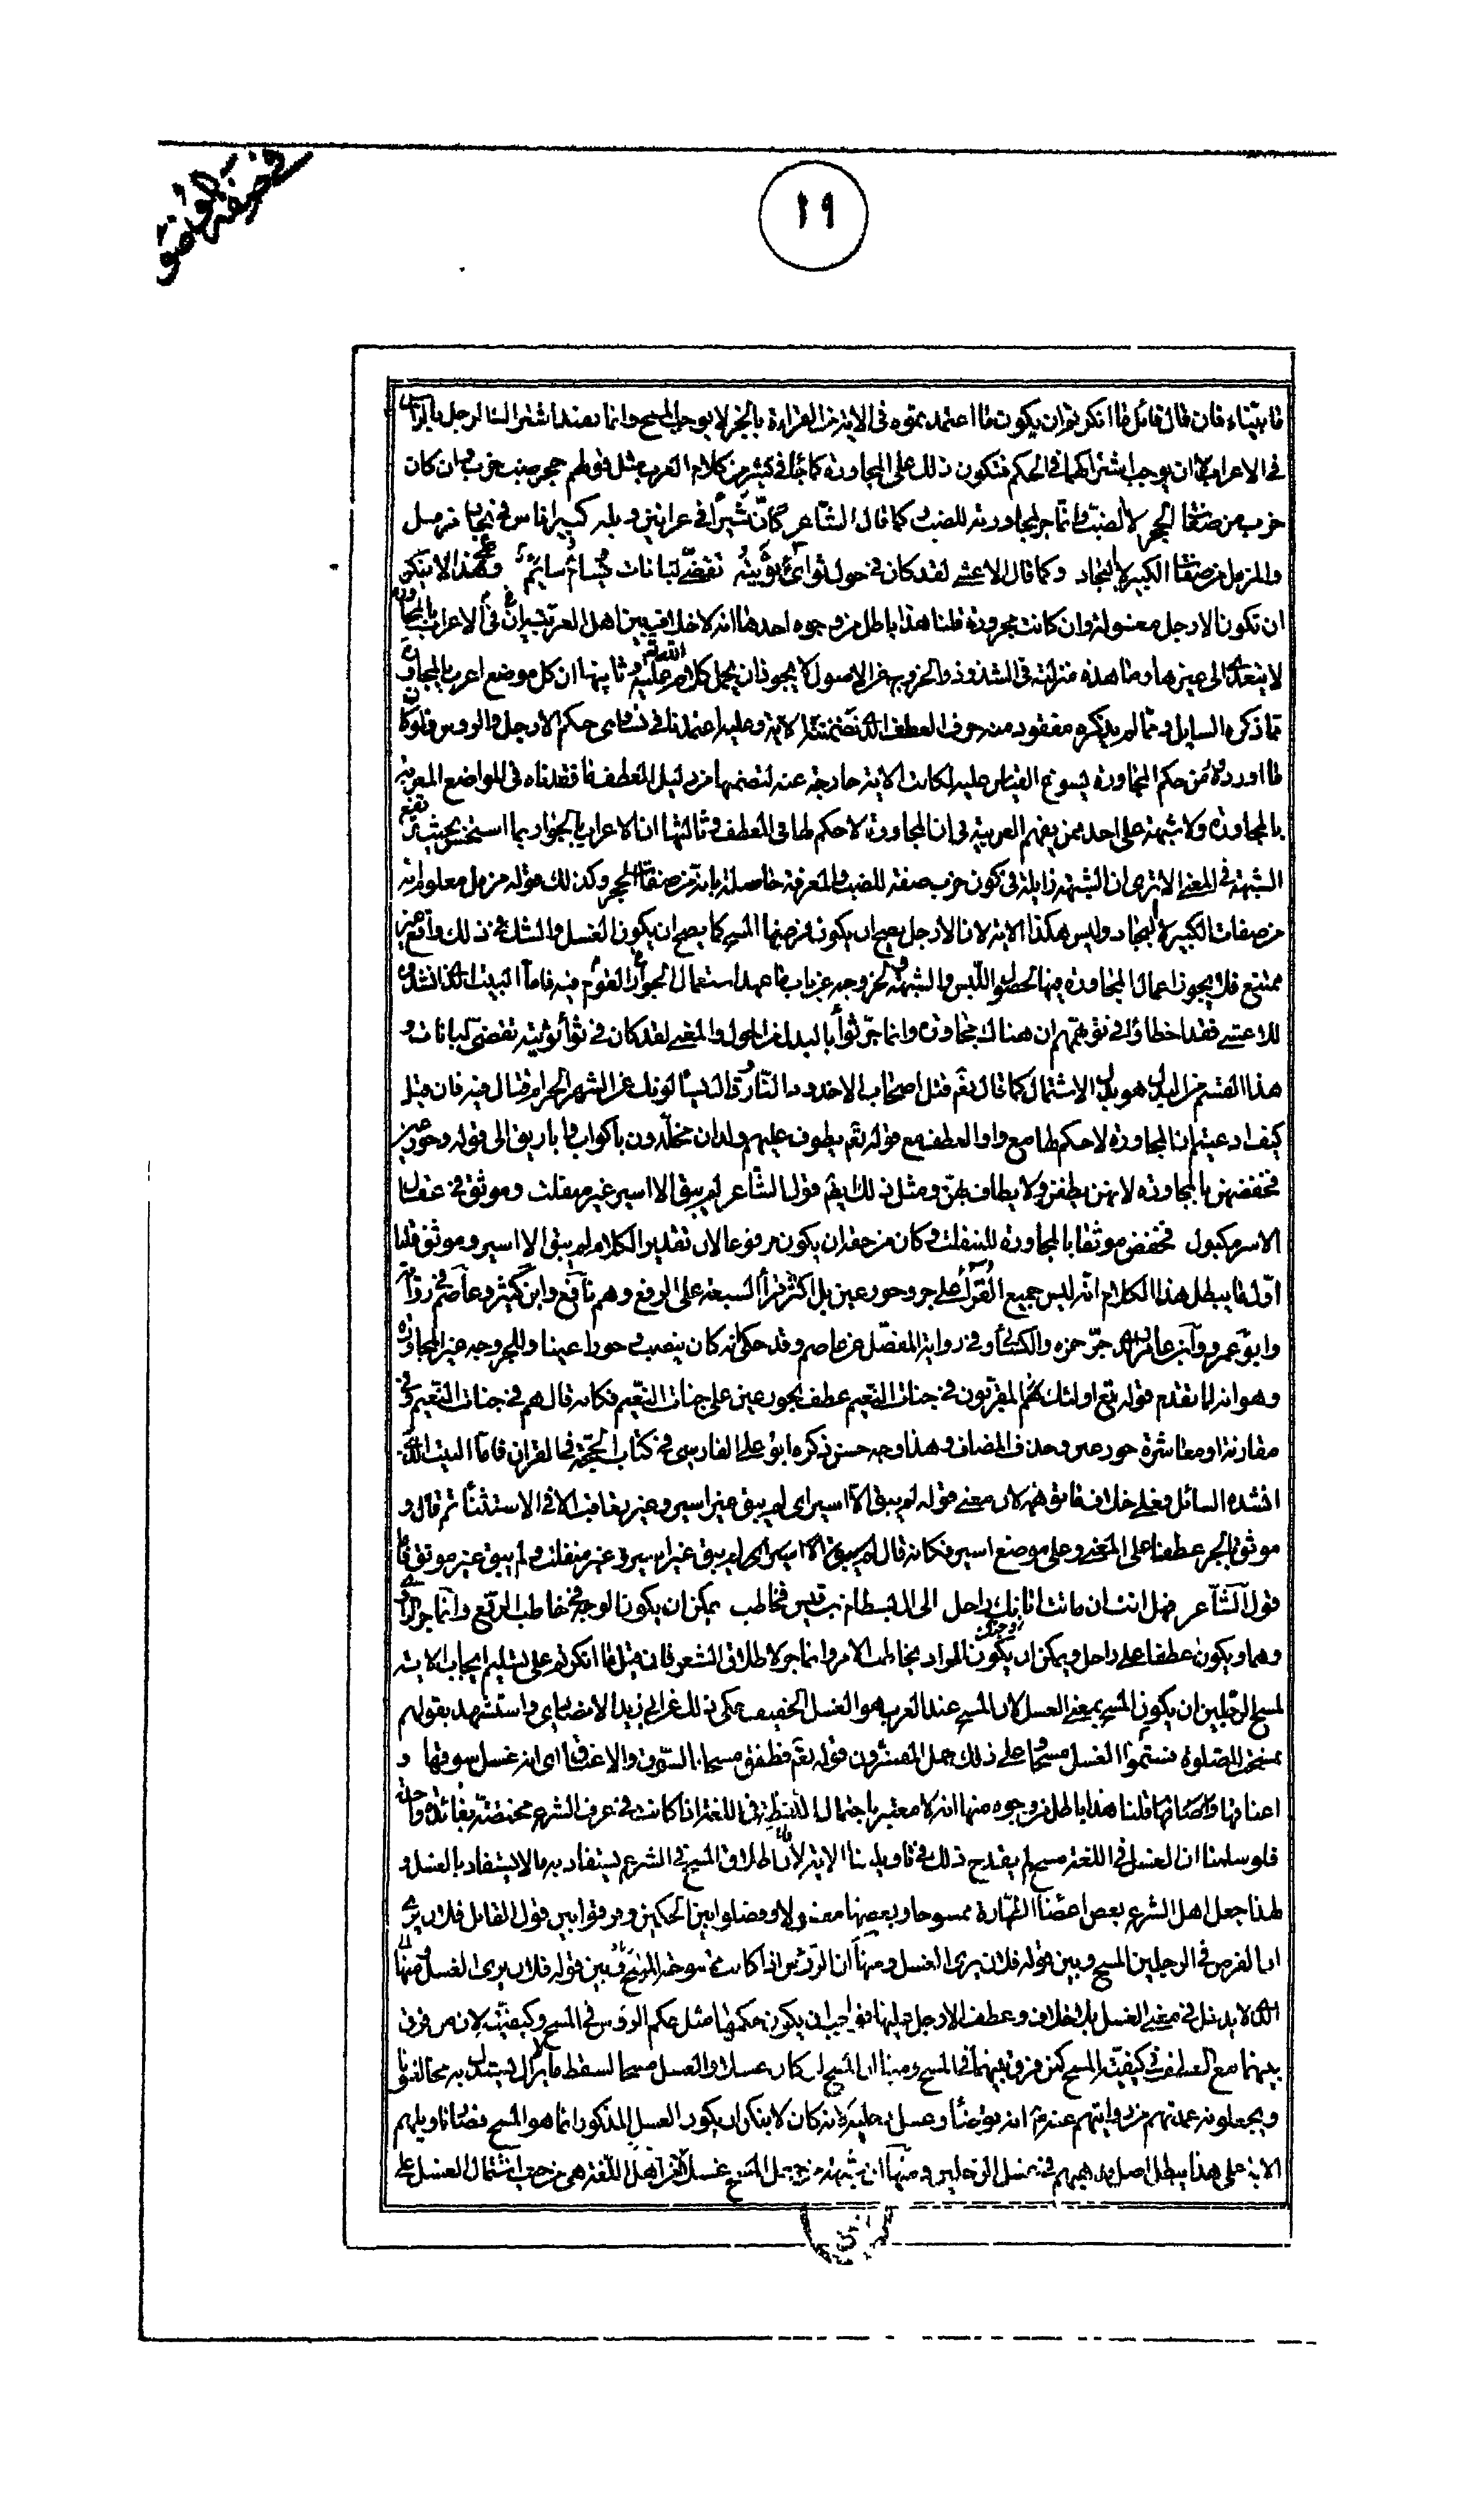 في صفة الوضوء
١٩
ما بيناه فان قال قائل ما انكرتم ان يكون ما اعتمدتموه في الاية من القراءة بالجر لا يوجب المسح وانما يفيد اشتراك الارجل بالراس
في الاعراب لا ان يوجب اشتراكهما في الحكم فتكون ذلك على المجاورة كما جاء في كثير من كلام العرب مثل قولهم حجر ضب خرب وان كان
خرب من صفات الحجر لا الضب وانما جر لمجاورته للضب وكما قال الشاعر كان ثبيرا في عرانين وبله كبير اناس في بجاد مزمل
والمزمل من صفات الكبير لا البجاد وكما قال الاعشى لقد كان في حول ثواء ثويته تقضي لبانات ويسام سائم وعلى هذا لا ينكر
ان تكون الارجل مغسولة وان كانت مجرورة قلنا هذا باطل من وجوه احدها انه لا خلاف بين اهل العربية في ان الاعراب بالمجاورة
لا يتعدى الى غيرها وما هذه منزلته في الشذوذ والخروج عن الاصول لا يجوز ان يحمل كلام الله تعالى عليه وثانيها ان كل موضع اعرب بالمجاورة
مما ذكره السايل ومما لم يذكره مفقود منه حرف العطف الذي تضمنته الاية وعليه اعتمدنا في تساوى حكم الارجل والروس فلو كان
ما اورده من حكم المجاورة يسوغ القياس عليه لكانت الاية خارجة عنه لتضمنها من دليل العطف ما فقدناه في المواضع المعربة
بالمجاورة ولا شبهة على احد ممن يفهم العربية في ان المجاورة لا حكم لها في العطف وثالثها ان الاعراب بالجوار انما استحسن بحيث ترتفع
الشبهة في المعنى الا ترى ان الشبهة زايلة في كون خرب صفة للضب والمعرفة حاصلة بانه من صفات الحجر وكذلك قوله مزمل معلوم انه
من صفات الكبير لا البجاد وليس هكذا الاية لان الارجل يصح ان يكون فرضها المسح كما يصح ان يكون الغسل والشك في ذلك واقع غير
ممتنع فلا يجوز اعمال المجاورة فيها لحصول اللبس والشبهة ولخروجه عن باب ما عهد استعمال الجوار القوم فيه فاما البيت الذي انشدوه
للاعشى فقد اخطاوا في توهمهم ان هناك مجاورة وانما جر ثواء بالبدل من الحول والمعنى لقد كان في ثواء ثويته تقضي لبانات و
هذا القسم من البدل هو بدل الاشتمال كما قال تعالى قتل اصحاب الاخدود النار وقال يسئلونك عن الشهر الحرام قتال فيه فان قيل
كيف ادعيتم ان المجاورة لا حكم لها مع واو العطف مع قوله تعالى يطوف عليهم ولدان مخلدون باكواب واباريق الى قوله وحور عين
فخفضهن بالمجاورة لانهن يطفن ولا يطاف بهن ومثل ذلك ايضا قول الشاعر لم يبق الا اسير غير منفلت وموثق في عقال
الاسر مكبول فخفض موثقا بالمجاورة للمنفلت وكان من حقه ان يكون مرفوعا لان تقدير الكلام لم يبق الا اسير وموثق قلنا
اول ما يبطل هذا الكلام انه ليس جميع القراء على جر وحور عين بل اكثر قراء السبعة على الرفع وهم نافع وابن كثير وعاصم في رواية
وابو عمرو وابن عامر وانما جر حمزه والكسائي وفي رواية المفضل عن عاصم وقد حكي انه كان ينصب وحورا عينا وللجر وجه غير المجاورة
وهو انه لما تقدم قوله تعالى اولئك هم المقربون في جنات النعيم عطف بحور عين على جنات النعيم فكانه قال هم في جنات النعيم وفي
مقارنة او معاشرة حور عين وحذف المضاف وهذا وجه حسن ذكره ابو علي الفارسي في كتاب الحجة في القران فاما البيت الذي
انشده السائل فعلى خلاف ما توهمه لان معنى قوله لم يبق الا اسير اي لم يبق غير اسير وغير يعاقب الا في الاستثناء ثم قال و
موثق بالجر عطفا على المعنى وعلى موضع اسير فكانه قال لم يبق الا اسير اي لم يبق غير اسير وغير منفلت ولم يبق غير موثق فاما
قول الشاعر فهل انت ان ماتت اتانك راحل الى ال بسطام بن قيس فخاطب يمكن ان يكون الوجه في خاطب الرفع وانما جر الراوي
وهما ويكون عطفا على راحل ويمكن ان يكون المراد فخاطب الامر وانما جر لاطلاق الشعر فان قيل ما انكرتم على تسليم ايجاب الاية
لمسح الرجلين ان يكون المسح بمعنى الغسل لان المسح عند العرب هو الغسل الخفيف حكى ذلك عن ابي زيد الانصاري واستشهد بقولهم
تمسحت للصلوة فسموا الغسل مسحا وعلى ذلك حمل المفسرون قوله تعالى فطفق مسحا بالسوق والاعناق اي انه غسل سوقها و
اعناقها قلنا هذا باطل من وجوه منها انه لا معتبر باحتمال اللفظة في اللغة اذا كانت في عرف الشرع مختصة بفائدة واحدة
فلو سلمنا ان الغسل في اللغة مسح لم يقدح ذلك في تاويلنا الاية لان اطلاق المسح في الشرع يستفاد به ما لا يستفاد بالغسل و
لهذا جعل اهل الشرع بعض اعضاء الطهارة ممسوحا وبعضها مغسولا وفصلوا بين الحكمين وفرقوا بين قول القائل فلان يرى
ان الفرض في الرجلين المسح وبين قوله فلان يرى الغسل ومنها ان الرؤس اذا كانت ممسوحة المسح
الذي لا يدخل في معنى الغسل بلا خلاف وعطف الارجل عليها فواجب ان يكون حكمها مثل حكم الروس في المسح وكيفيته لان من فرق
بينهما مع العطف في كيفية المسح كمن فرق بينهما في المسح ومنها ان المسح لو كان غسلا والغسل مسحا لسقط ما لا يزال يستدل به مخالفونا
ويجعلونه عمدتهم من روايتهم عنه انه توضا وغسل رجليه لانه كان لا ينكر ان يكون الغسل المذكور انما هو المسح فصار تاويلهم
الاية على هذا يبطل اصل مذهبهم في غسل الرجلين ومنها ان شبهة من جعل المسح غسلا من اهل اللغة هي من حيث اشتمال الغسل على